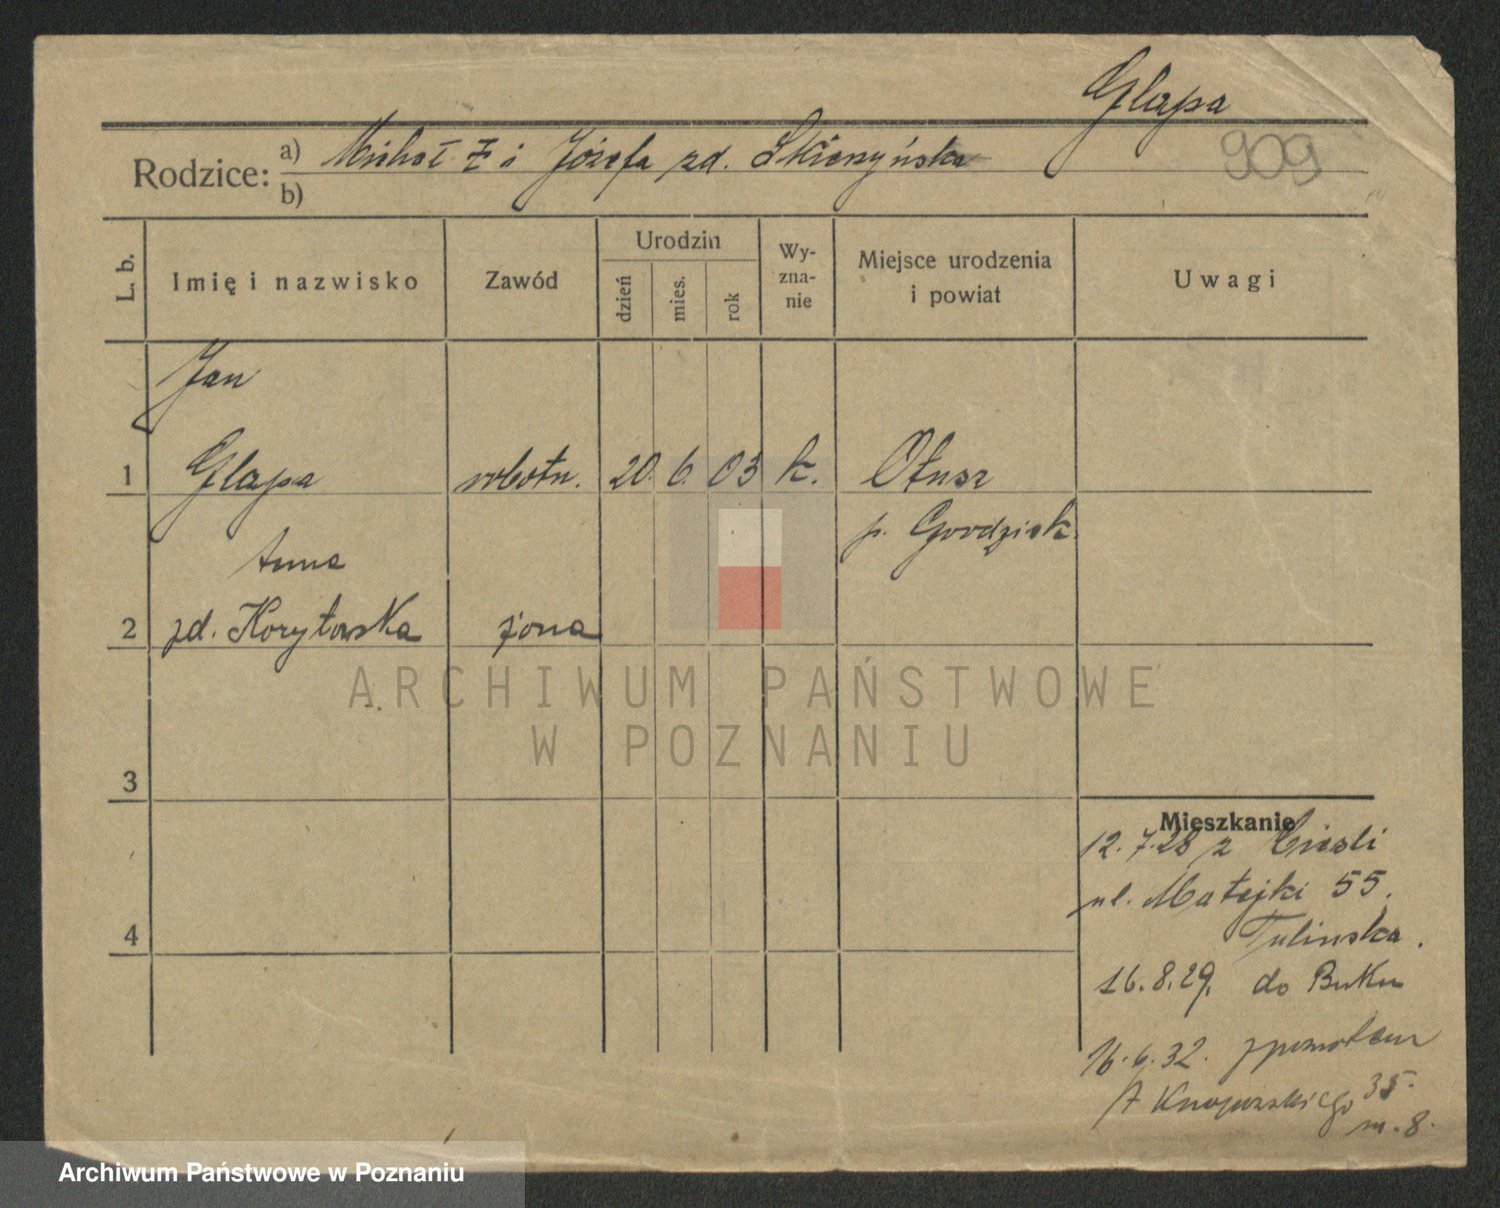 Glapa
909
Rodzice: a) Michał i Józefa zd. Skierzyńska
b)
L. b.
Imię i nazwisko
Zawód
Urodzin
dzień
mies.
rok
Wy-
zna-
nie
Miejsce urodzenia
i powiat
Uwagi
Jan
1 Glapa robotn. 20. 6. 03 k. Otusz
p. Grodzisk.
Anna
2 zd. Korytowska żona
ARCHIWUM PAŃSTWOWE
W POZNANIU
3
Mieszkanie
12.7.28 z
ul. Matejki 55.
Tulinska.
4
16.8.29. do Buku
16.6.32. z powrotem
35
m. 8.
Archiwum Państwowe w Poznaniu